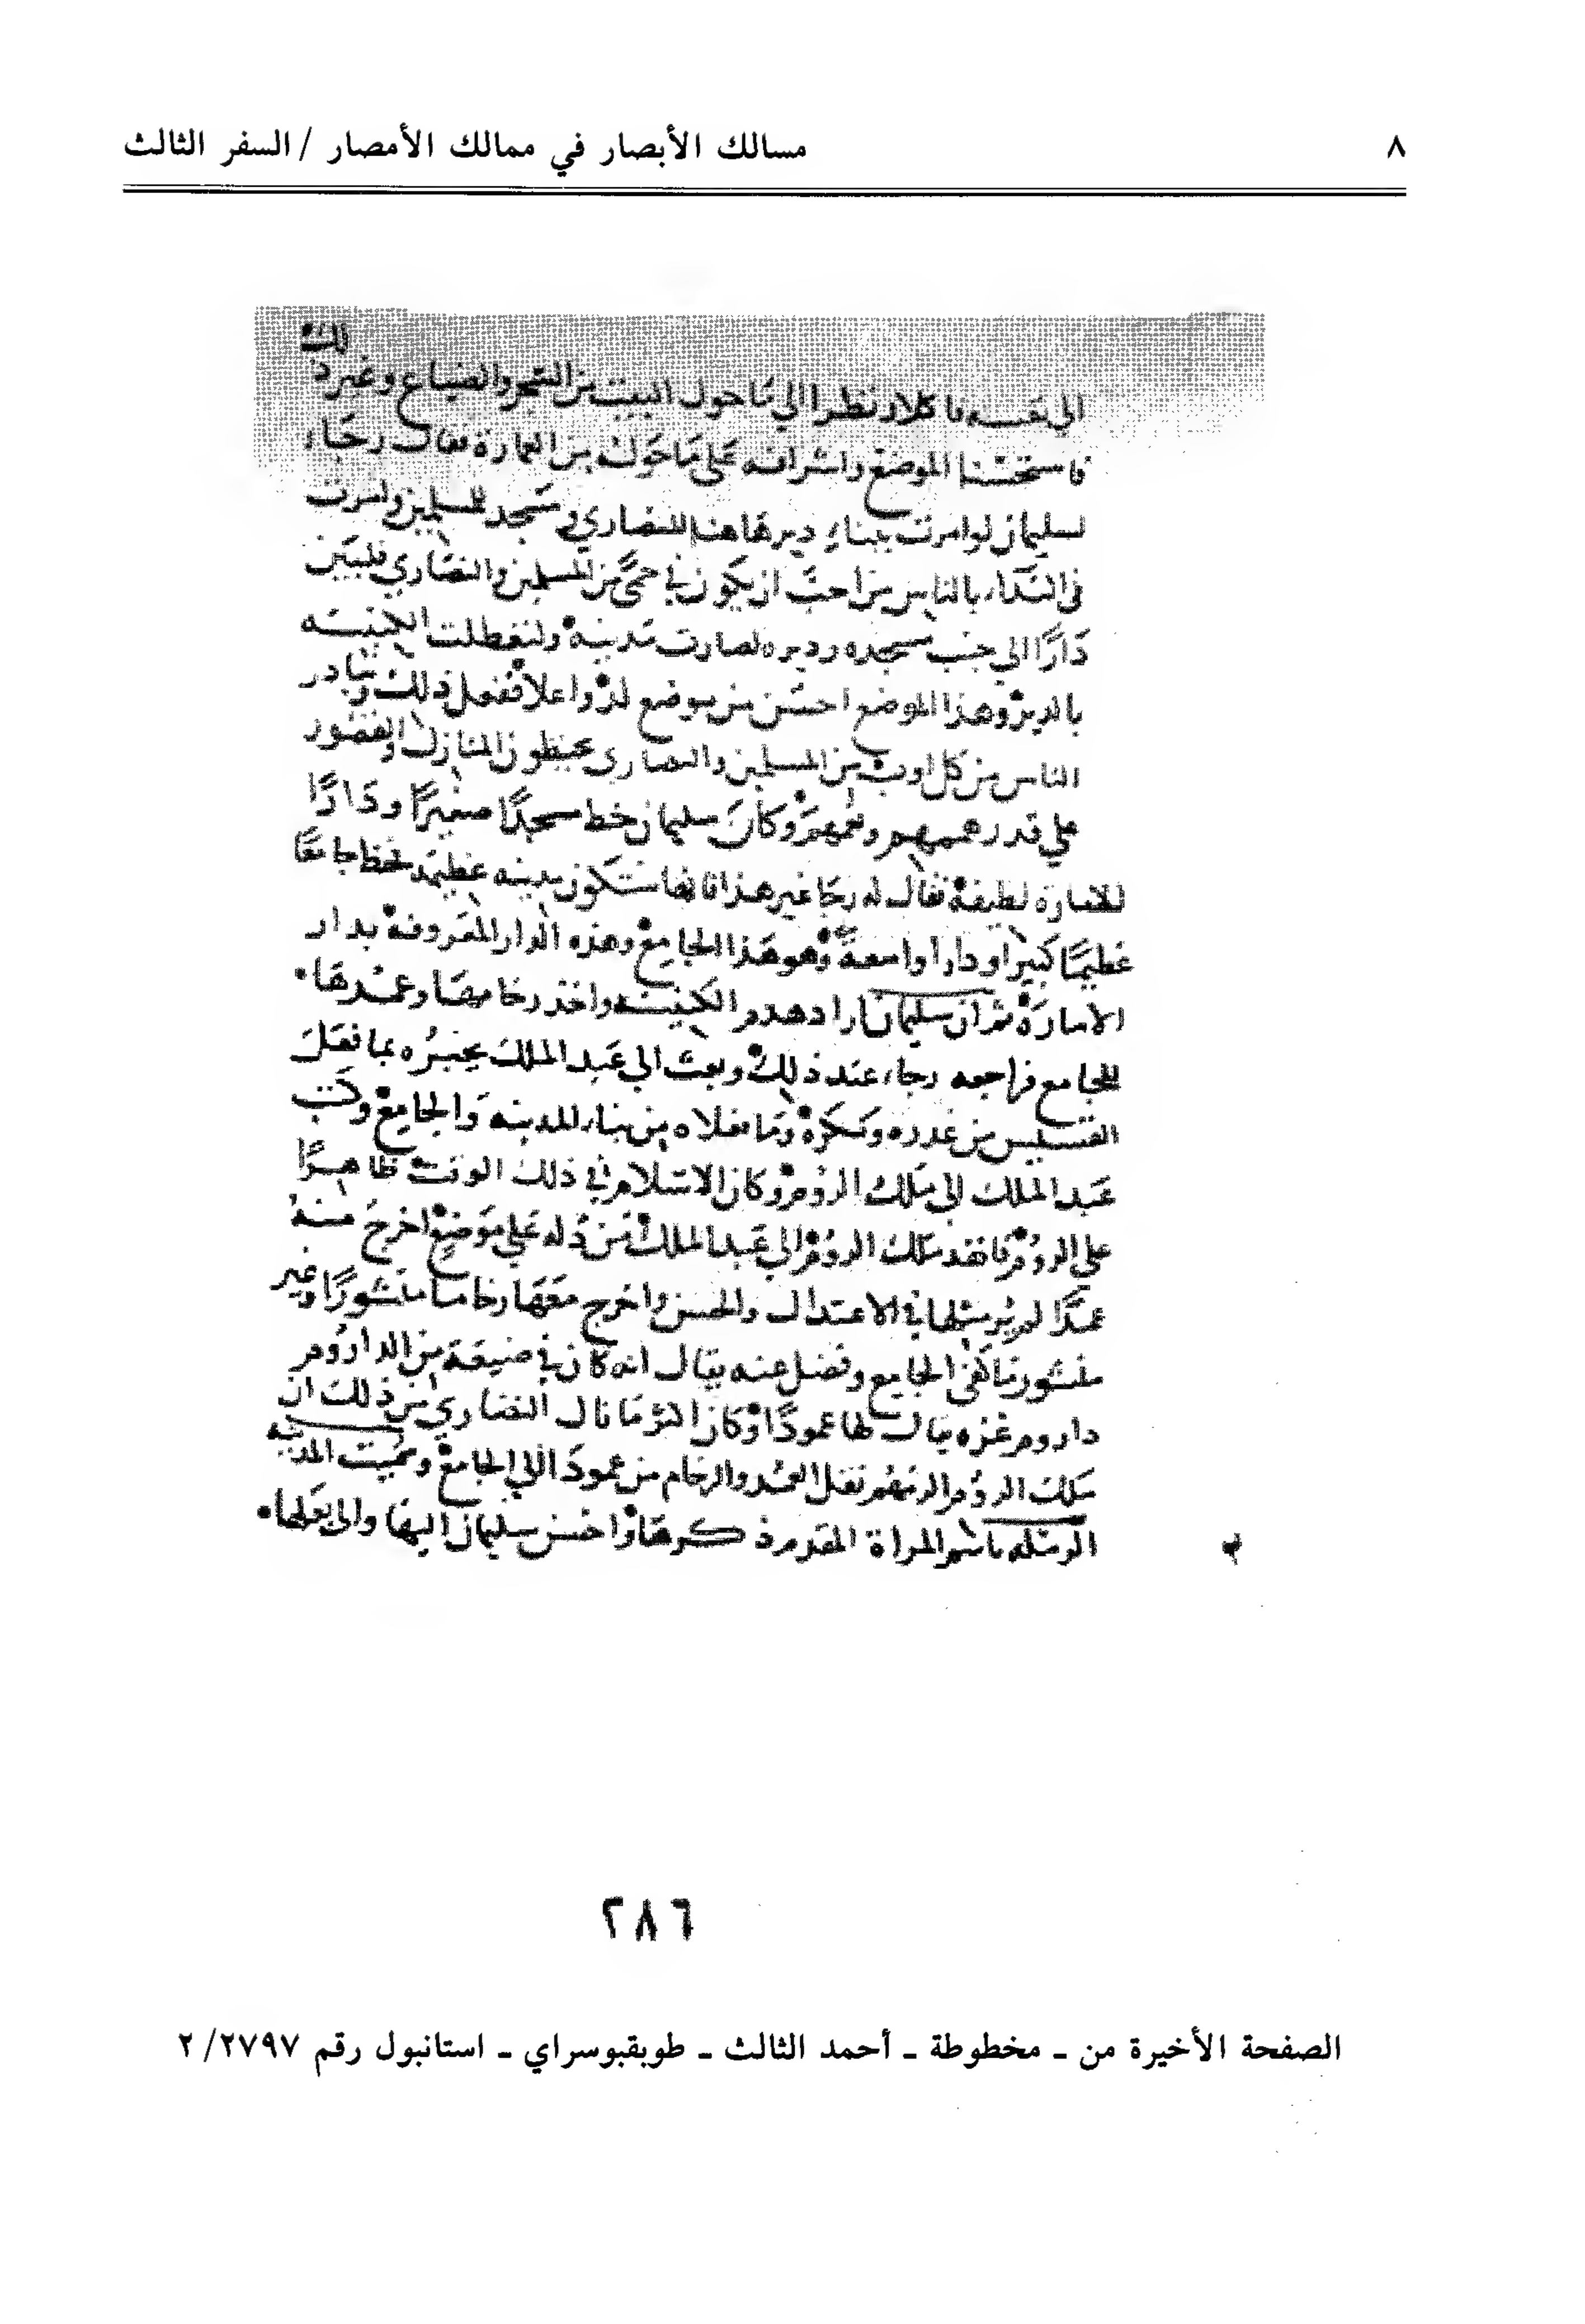 ٨
مسالك الأبصار في ممالك الأمصار / السفر الثالث
الى نفسه فاكلا ونظرا الي ما حول البيت من الشجر والضياع وغير ذلك
فاستحسنا الموضع واشرافه على ما حوله من العمارة فقال رجاء
لسليمان لو امرت ببناء دير هاهنا للنصاري ومسجد للمسلمين وامرت
في النداء بالناس من احب ان يكون في حمى من المسلمين والنصاري فليبتن
دارا الي جنب مسجده وديره لصارت مدينة ولتعطلت الكنيسه
بالدير وهذا الموضع احسن من موضع لد واعلا ففعل ذلك وتبادر
الناس من كل اوب من المسلمين والنصاري يختطون المنازل والقصور
علي قدر هممهم ونعمهم وكان سليمان خط مسجدا صغيرا ودارا
للامارة لطيفة فقال له رجا غير هذا فانها ستكون مدينه عظيمة فخط جامعا
عظيما كبيرا ودارا واسعة وهو هذا الجامع وهذه الدار المعروفة بدار
الامارة ثم ان سليمان اراد هدم الكنيسه واخذ رخامها وعمدها
للجامع فراجعه رجاء عند ذلك وبعث الي عبد الملك يخبره بما فعل
القسيس من غدره ومكره وما فعلاه من بناء المدينه والجامع وكتب
عبد الملك الى ملك الروم وكان الاسلام في ذلك الوقت ظاهرا
علي الروم فانفد ملك الروم الي عبد الملك من دله علي موضع اخرج منه
عمدا لم ير مثلها في الاعتدال والحسن واخرج معها رخاما منشورا وغير
منشور ما كفى الجامع وفضل عنه يقال انه كان في ضيعة من الداروم
داروم غزه يقال لها عمودا وكان الزم ما نال النصاري من ذلك ان
ملك الروم الزمهم نقل العمد والرخام من عمودا الي الجامع وسميت المدينه
الرمله باسم المراة المقدم ذكرها واحسن سليمان اليها والى بعلها
٢٨٦
الصفحة الأخيرة من ـ مخطوطة ـ أحمد الثالث ـ طوبقبوسراي ـ استانبول رقم ٢٧٩٧/ ٢